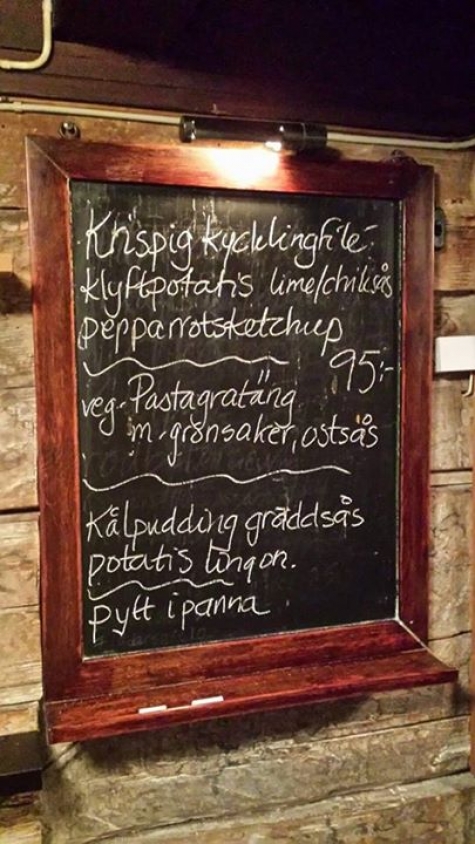 Krispig kycklingfilé
klyftpotatis lime/chilisås
pepparrotsketchup
95:-
veg. Pastagratäng
m. grönsaker, ostsås
Kålpudding gräddsås
potatis lingon.
pytt i panna